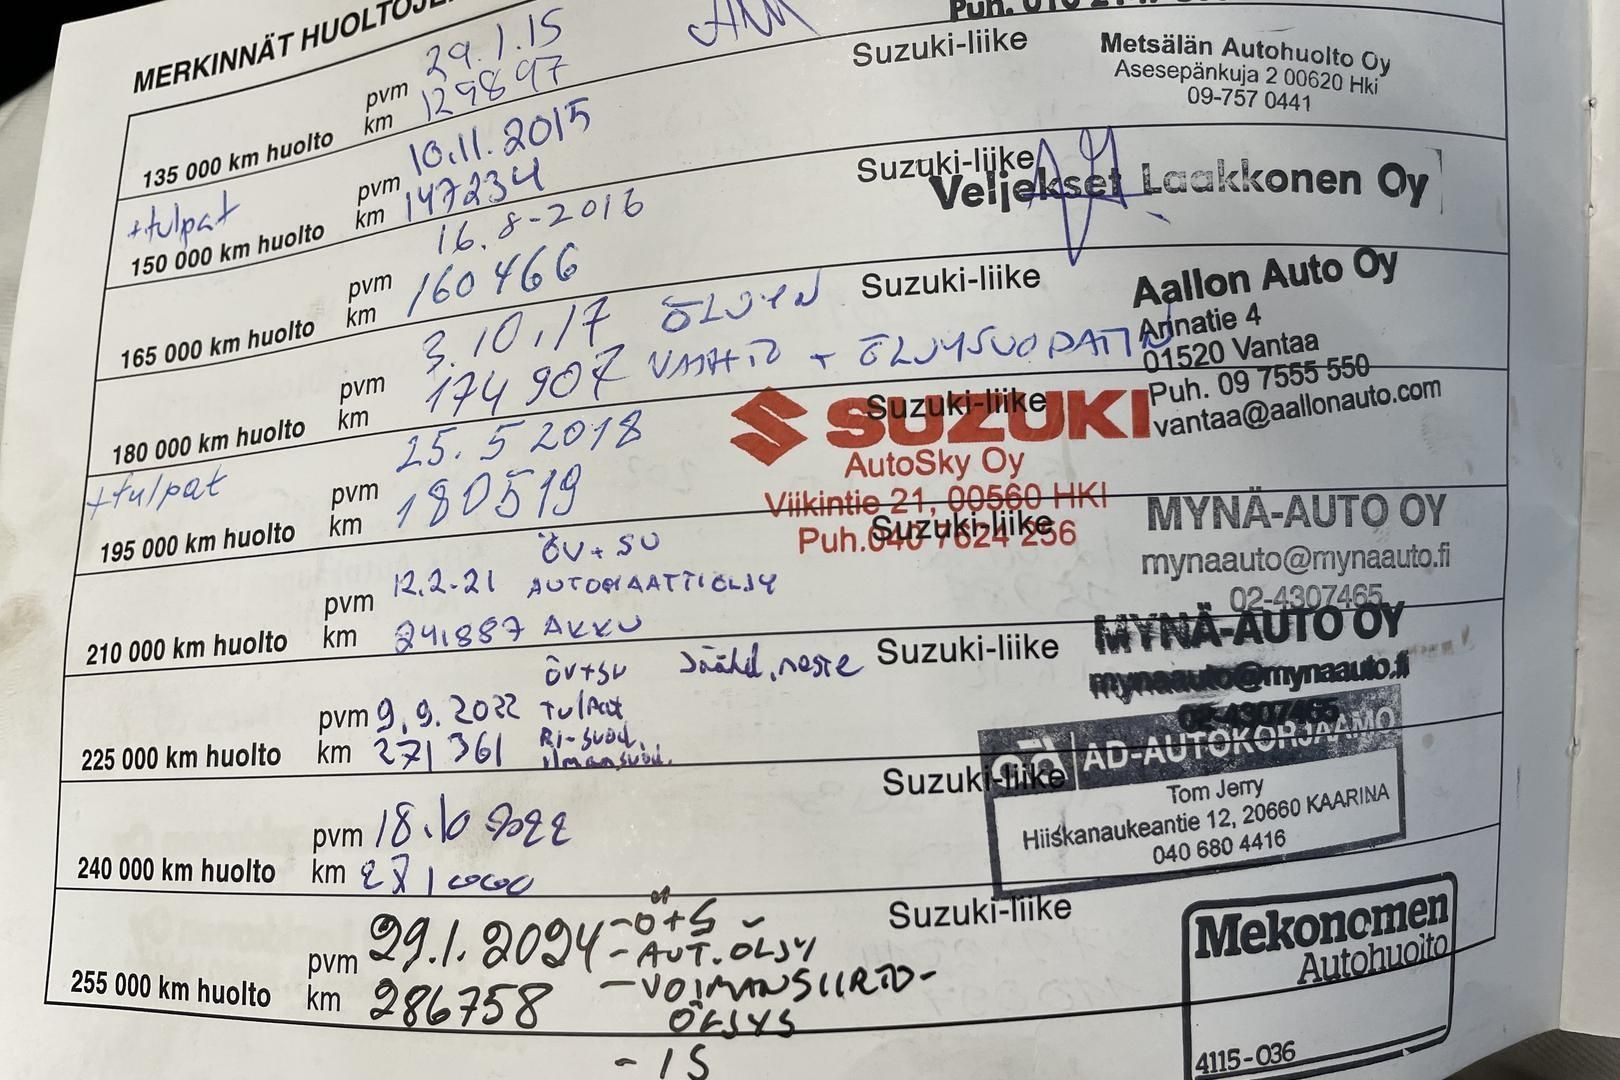 MERKINNÄT
Suzuki-liike
Metsälän Autohuolto Oy
Asesepänkuja 2 00620 Hki
09-757 0441
pvm 29.1.15
135 000 km huolto km 129897
+tulpat
Suzuki-liike
Veljekset Laakkonen Oy
pvm 10.11.2015
150 000 km huolto km 147234
Suzuki-liike
Aallon Auto Oy
Arinatie 4
01520 Vantaa
Puh. 09 7555 550
vantaa@aallonauto.com
pvm 16.8-2016
165 000 km huolto km 160466
pvm 3.10.17 ÖLJYN
180 000 km huolto km 174907 VAIHTO + ÖLJYSUODATIN
+tulpat
Suzuki-liike
SUZUKI
AutoSky Oy
Viikintie 21, 00560 HKI
Puh.040 7624 256
pvm 25.5 2018
195 000 km huolto km 180519
Suzuki-liike
MYNÄ-AUTO OY
mynaauto@mynaauto.fi
02-4307465
ÖV+SU
pvm 12.2-21 AUTOMAATTIÖLJY
210 000 km huolto km 241887 AKKU
Suzuki-liike
MYNÄ-AUTO OY
mynaauto@mynaauto.fi
02-4307465
ÖV+SU Jäähd.neste
pvm 9.9.2022 Tulpat
225 000 km huolto km 271361 RI-SUOD.
ilmansuod.
Suzuki-liike
AD AD-AUTOKORJAAMO
Tom Jerry
Hiiskanaukeantie 12, 20660 KAARINA
040 680 4416
pvm 18.10 2022
240 000 km huolto km 271000
Suzuki-liike
Mekonomen
Autohuolto
4115-036
pvm 29.1.2024 -Ö+S
-AUT.ÖLJY
255 000 km huolto km 286758 -VOIMANSIIRTO-
ÖLJYS
-IS